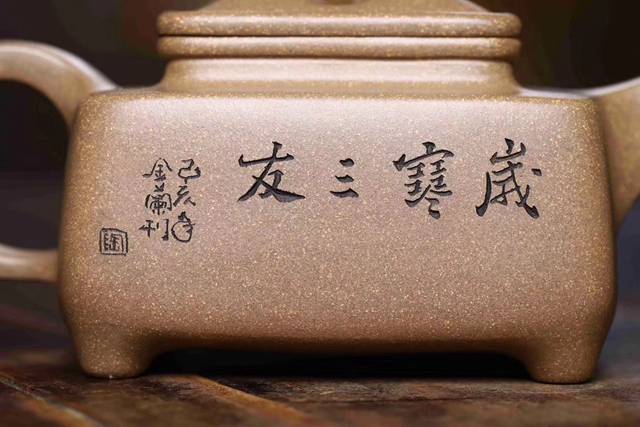 歲寒三友
己亥年
金蘭刊
陶